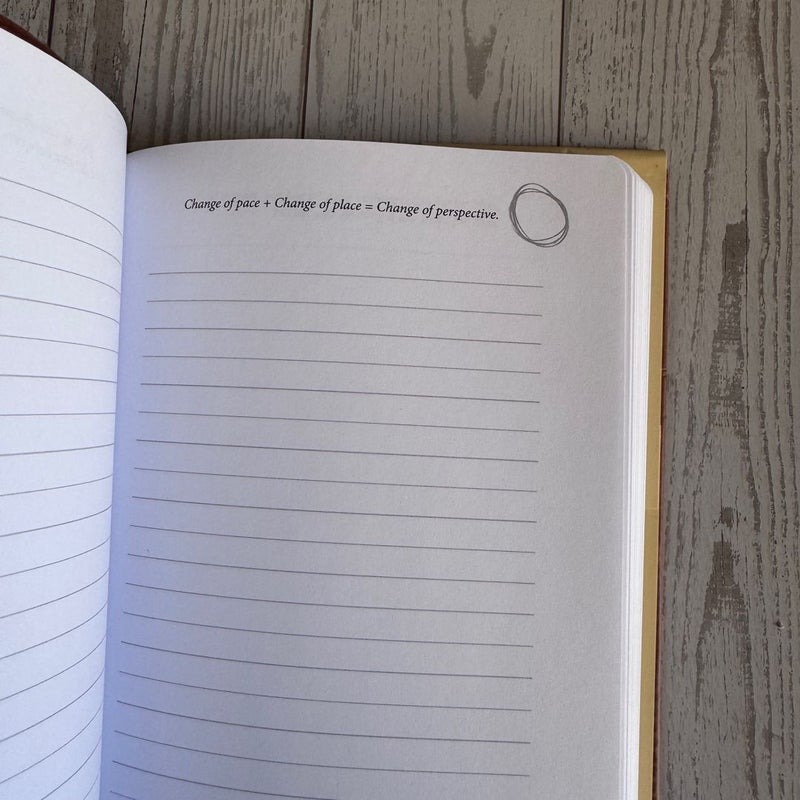 Change of pace + Change of place = Change of perspective.